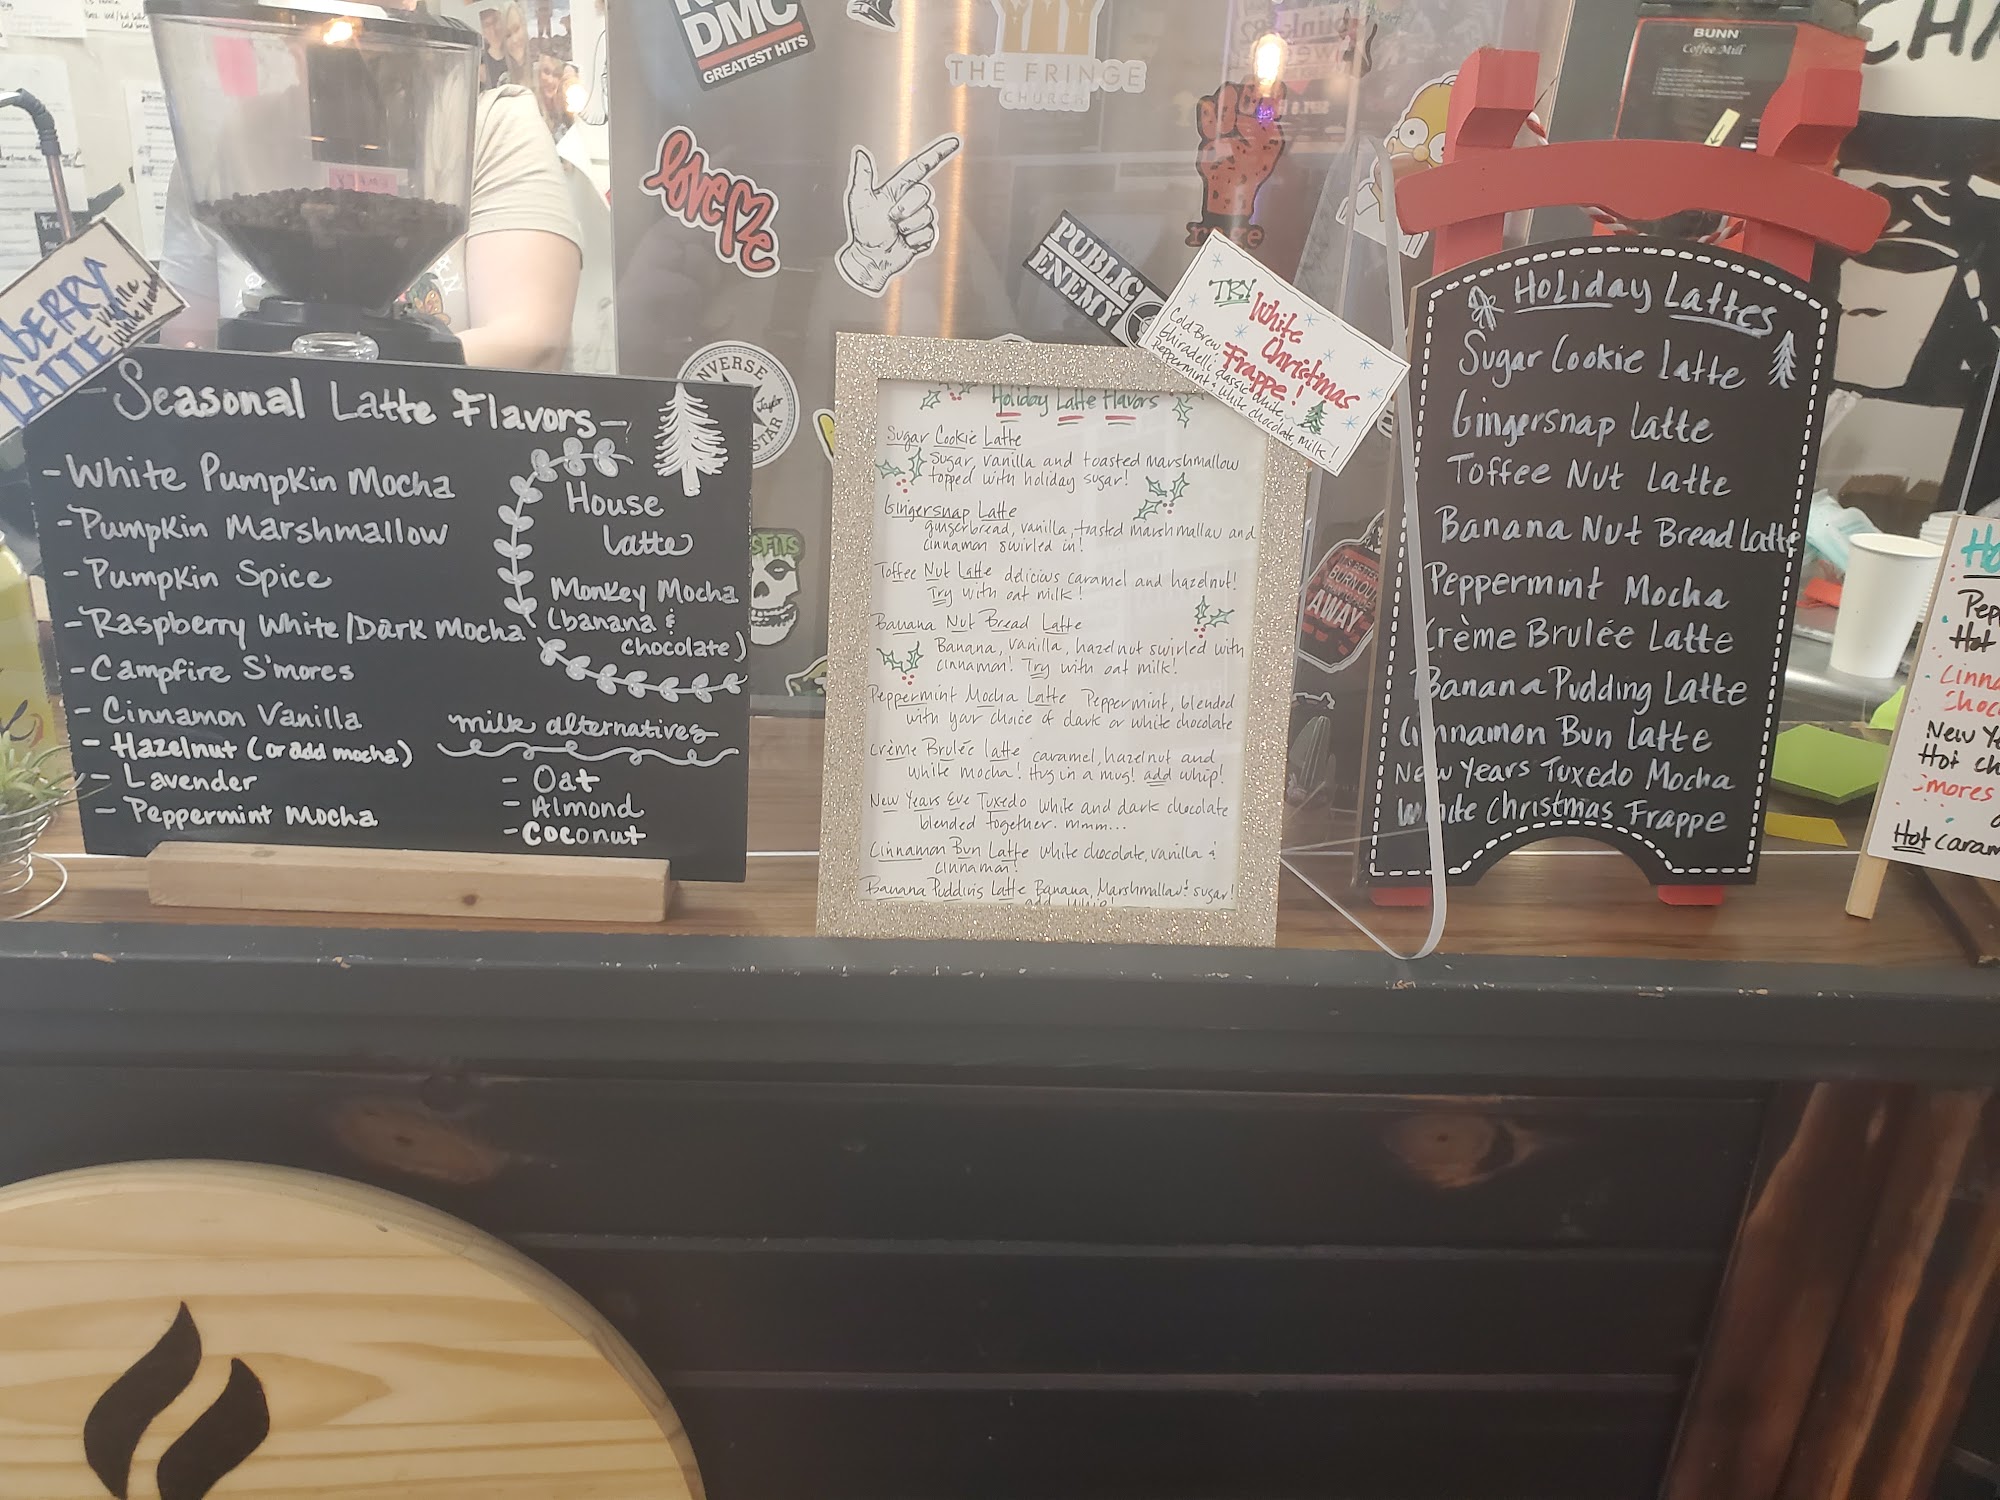 DMC
GREATEST HITS
THE FRINGE
CHURCH
BUNN
Coffee Mill
love me
rage
PUBLIC
ENEMY
NBERRY
LATTE
Vanilla
White Mocha
- Seasonal Latte Flavors -
- White Pumpkin Mocha
- Pumpkin Marshmallow
- Pumpkin Spice
- Raspberry White/Dark Mocha
- Campfire S'mores
- Cinnamon Vanilla
- Hazelnut (or add mocha)
- Lavender
- Peppermint Mocha
House
Latte
Monkey Mocha
(banana &
chocolate)
milk alternatives
- Oat
- Almond
- Coconut
NVERSE
Taylor
STAR
SFITS
TRY White
Christmas
Frappe!
Cold Brew,
Ghiradelli classic white,
Peppermint & white chocolate, milk!
Holiday Latte Flavors
Sugar Cookie Latte
Sugar, vanilla and toasted marshmallow
topped with holiday sugar!
Gingersnap Latte
gingerbread, vanilla, toasted marshmallow and
cinnamon swirled in!
Toffee Nut Latte delicious caramel and hazelnut!
Try with oat milk!
Banana Nut Bread Latte
Banana, vanilla, hazelnut swirled with
cinnamon! Try with oat milk!
Peppermint Mocha Latte Peppermint, blended
with your choice of dark or white chocolate
Crème Brulée latte caramel, hazelnut and
white mocha! Hug in a mug! add whip!
New Years Eve Tuxedo White and dark chocolate
blended together. mmm...
Cinnamon Bun Latte White chocolate, vanilla &
cinnamon!
Banana Pudding Latte Banana, Marshmallow & sugar!
add whip!
BURN OUT
AWAY
Holiday Lattes
Sugar Cookie Latte
Gingersnap Latte
Toffee Nut Latte
Banana Nut Bread Latte
Peppermint Mocha
Crème Brulée Latte
Banana Pudding Latte
Cinnamon Bun Latte
New Years Tuxedo Mocha
White Christmas Frappe
Ho
Pepp
Hot
Cinna
Choc
New Ye
Hot ch
S'mores
Hot caram